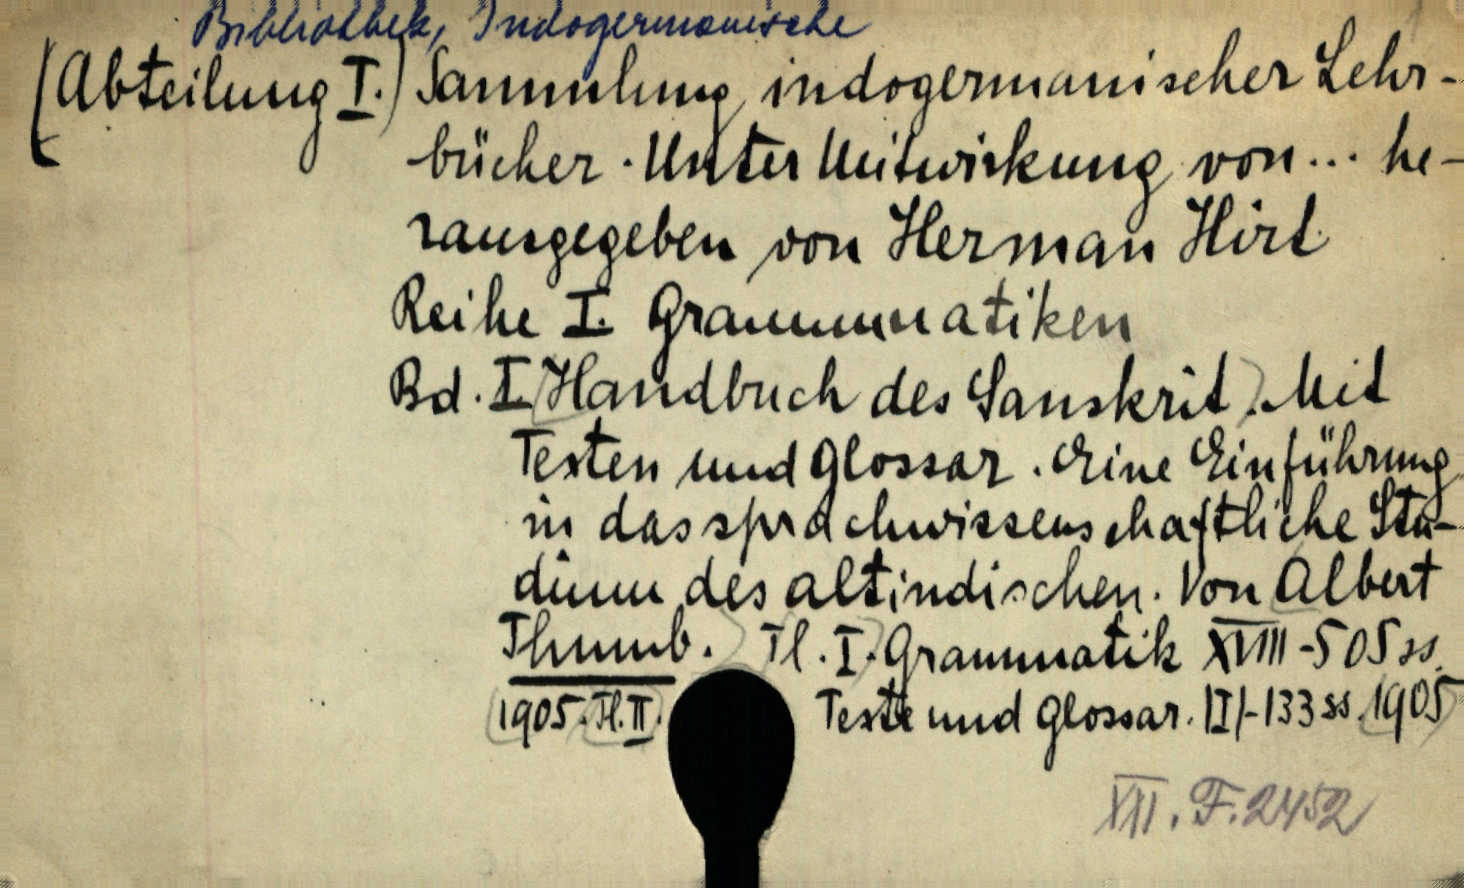 Bibliothek, Indogermanische
(Abteilung I.) Sammlung indogermanischer Lehr-
bücher. Unter Mitwirkung von... he-
rausgegeben von Herman Hirt
Reihe I. Grammatiken
Bd. I. Handbuch des Sanskrit. Mit
Texten und Glossar. Eine Einführung
in das sprachwissenschaftliche Stu-
dium des altindischen. Von Albert
Thumb. Tl. I. Grammatik XVIII-505 ss.
1905. Tl. II. Texte und Glossar. |I|-133 ss. 1905
XII. F. 2452